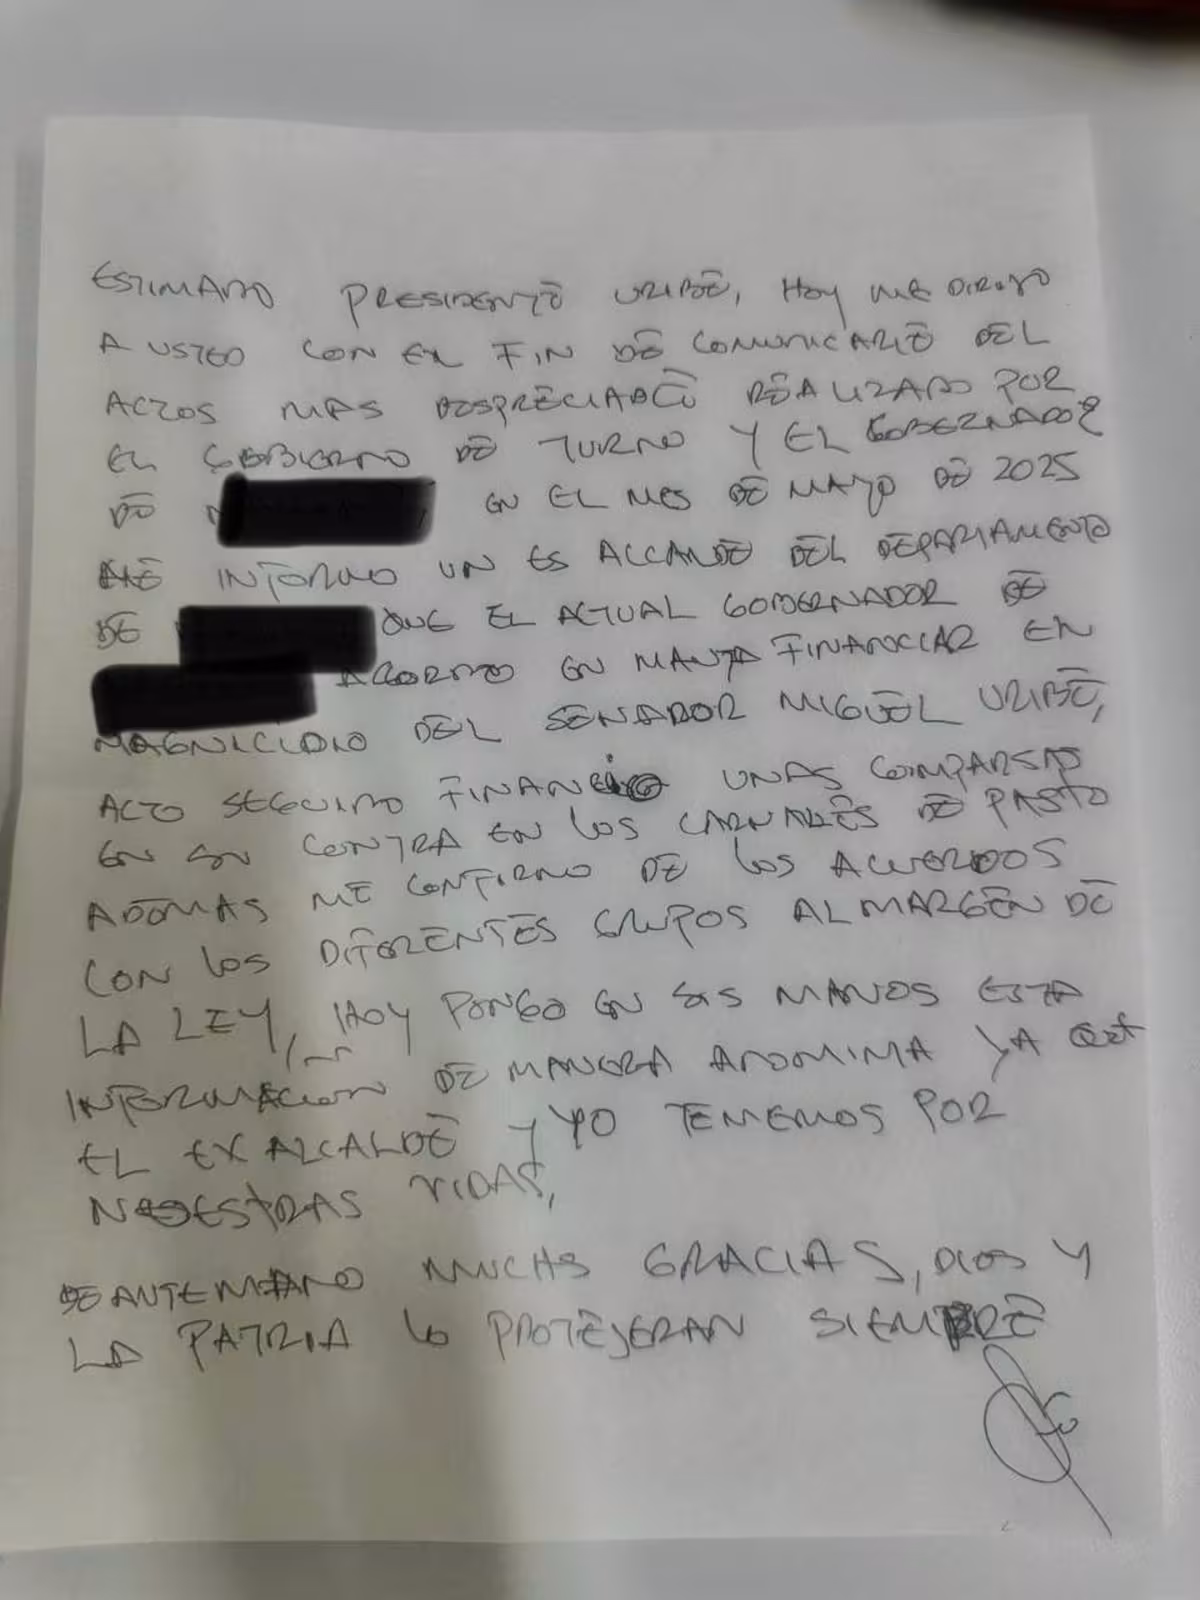 ESTIMADO PRESIDENTE URIBE, HOY ME DIRIJO
A USTED CON EL FIN DE COMUNICARLE DEL
ACTOS MAS DESPRECIABLE REALIZADO POR
EL GOBIERNO DE TURNO Y EL GOBERNADOR
DE EN EL MES DE MAYO DE 2025
ME INFORMO UN ES ALCANDE DEL DEPARTAMENTO
DE QUE EL ACTUAL GOBERNADOR DE
ACORDO EN MANTA FINANCIAR EN
MAGNICIDIO DEL SENADOR MIGUEL URIBE,
ACTO SEGUIDO FINANCIO UNAS COMPARSAS
EN SU CONTRA EN LOS CARNALES DE PASTO
ADEMAS ME CONFIRMO DE LOS ACUERDOS
CON LOS DIFERENTES GRUPOS AL MARGEN DE
LA LEY, HOY PONGO EN SUS MANOS ESTA
INFORMACION DE MANERA ANONIMA YA QUE
EL EX ALCALDE Y YO TEMEMOS POR
NUESTRAS VIDAS,
DE ANTEMANO MUCHS GRACIAS, DIOS Y
LA PATRIA LO PROTEJERAN SIEMPRE